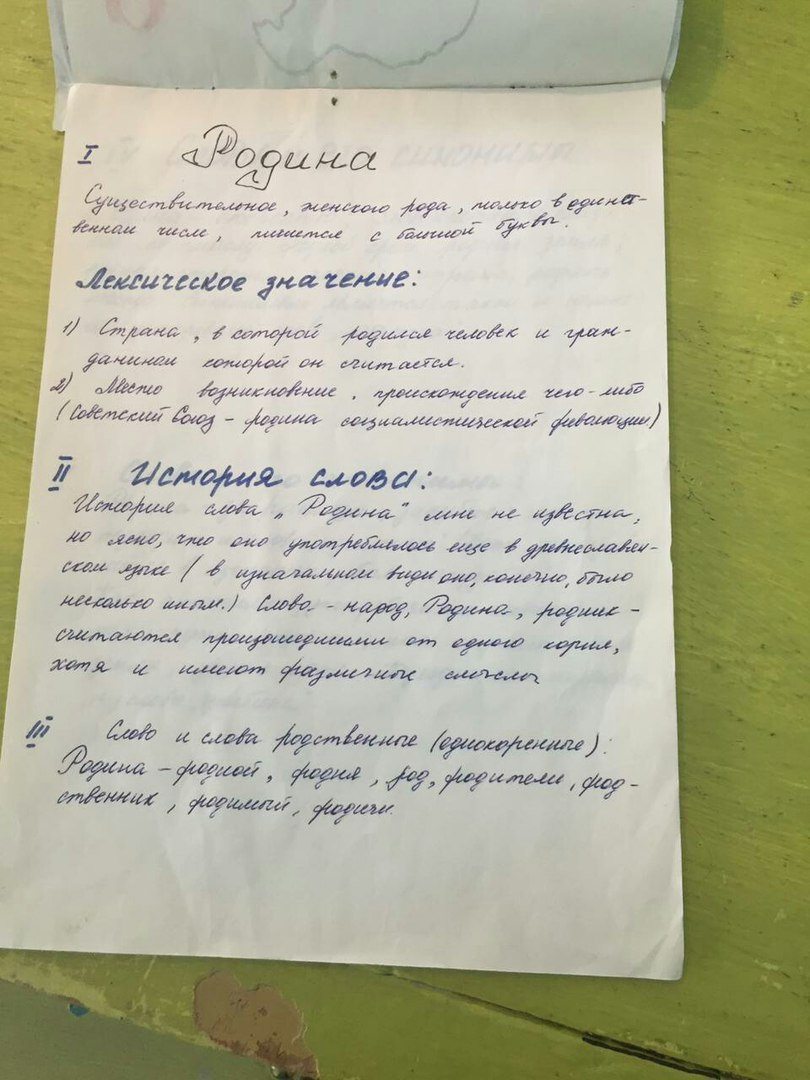 I Родина
Существительное, женского рода, только в единст-
венном числе, пишется с большой буквы.
Лексическое значение:
1) Страна, в которой родился человек и граж-
данином которой он считается.
2) Место возникновение, происхождения чего-либо
(Советский Союз - родина социалистической революции)
II История слова:
История слова „Родина" мне не известна,
но ясно, что оно употреблялось еще в древнеславян-
ском языке (в изначальном види оно, конечно, было
несколько иным.) Слова - народ, Родина, родник -
считаются произошедшими от одного корня,
хотя и имеют различные смыслы
III Слово и слова родственные (однокоренные):
Родина - родной, родня, род, родители, род-
ственник, родимый, родичи.